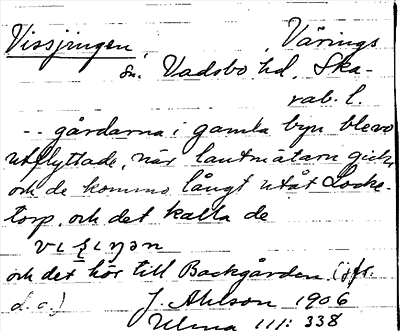 Vissjringen, Värings
sn. Vadsbo hd. Ska-
rab. l.
-- gårdarna i gamla byn blevo
utflyttade, när lantmätarn gick
och de kommo långt utåt Locke-
torp, och det kalla de
och det hör till Backgården (jfr.
d. o.) J. Ahlson 1906
Ulma 111: 338